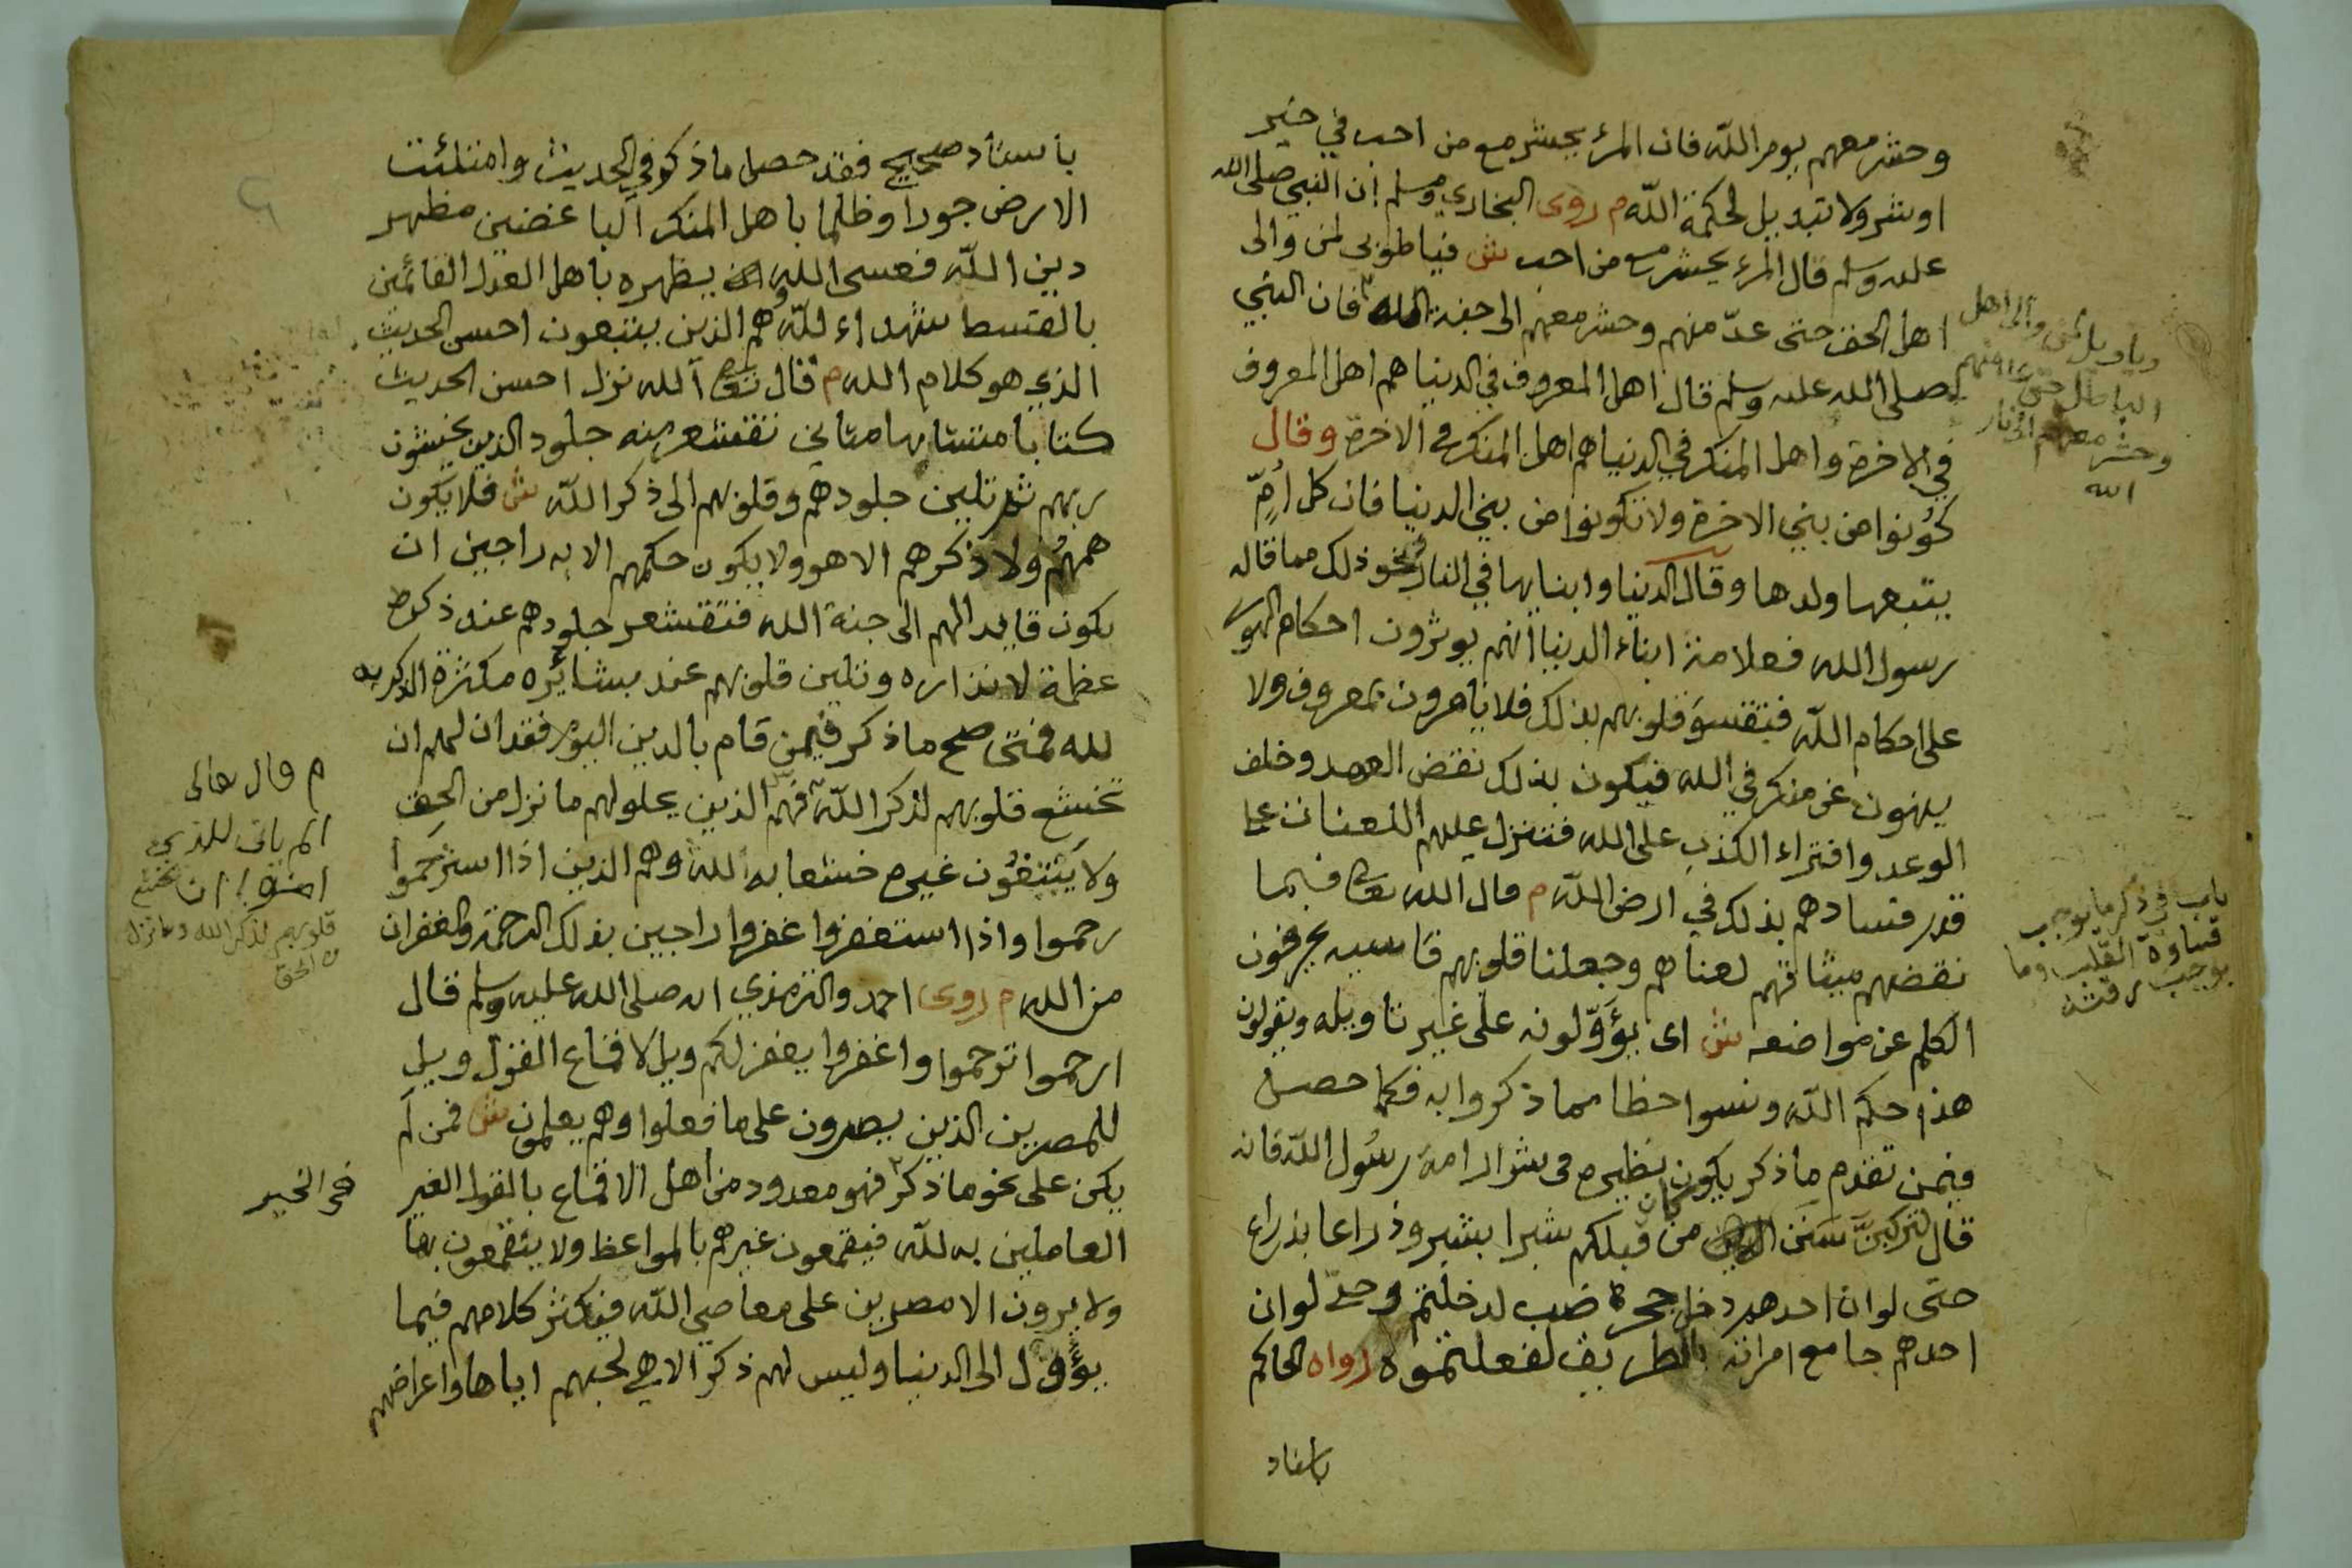 وحشر معهم يوم الله فان المرء يحشر مع من احب في خير
او شر ولا تبديل لحكمة الله م روى البخاري ومسلم ان النبي صلى الله
عليه وسلم قال المرء يحشر مع من احب ش فيا طوبى لمن والى
اهل الحق حتى عدّ منهم وحشر معهم الى جنة الله فان النبي
صلى الله عليه وسلم قال اهل المعروف في الدنيا هم اهل المعروف
في الاخرة واهل المنكر في الدنيا هم اهل المنكر في الاخرة وقال
كونوا من بني الاخرة ولا تكونوا من بني الدنيا فان كل أمّ
يتبعها ولدها وقال الدنيا وابنايها في النار ونحو ذلك مما قاله
رسول الله فعلامة ابناء الدنيا انهم يوثرون احكام الهوى
على احكام الله فتقسو قلوبهم بذلك فلا يامرون بمعروف ولا
ينهون عن منكر في الله فيكون بذلك نقض العهد وخلف
الوعد وافتراء الكذب على الله فتنزل عليهم اللعنات على
قدر فسادهم بذلك في ارض الله م قال الله تعالى فبما
نقضهم ميثاقهم لعناهم وجعلنا قلوبهم قاسيه يحرفون
الكلم عن مواضعه ش اى يؤوّلونه على غير تاويله ويقولون
هذا حكم الله ونسوا حظا مما ذكروا به فكما حصل
فيمن تقدم ما ذكر يكون نظيره في شرار امة رسول الله فانه
قال لتركبنّ سنن من كان قبلكم شبرا بشبر وذراعا بذراع
حتى لو ان احدهم دخل جحر ضب لدخلتم وحتى لو ان
احدهم جامع امراته بالطريق لفعلتموه رواه الحاكم
باسناد
ويا ويل لمن والى اهل
الباطل حتى عد منهم
وحشر معهم الى نار
الله
باب في ذكر ما يوجب
قساوة القلب وما
يوجب رقته
باسناد صحيح فقد حصل ما ذكر في الحديث وامتلئت
الارض جورا وظلما باهل المنكر الباغضين مظهر
دين الله فعسى الله ان يظهره باهل العدل القائمين
بالقسط شهداء لله وهم الذين يتبعون احسن الحديث
الذي هو كلام الله م قال تعالى الله نزل احسن الحديث
كتابا متشابها مثاني تقشعر منه جلود الذين يخشون
ربهم ثم تلين جلودهم وقلوبهم الى ذكر الله ش فلا يكون
همهم ولا ذكرهم الا هو ولا يكون حكمهم الا به راجين ان
يكون قايدا لهم الى جنة الله فتقشعر جلودهم عند ذكره
عظمة لانذاره وتلين قلوبهم عند بشائره مكثرة الذكر به
لله فمتى صح ما ذكر فيمن قام بالدين اليوم فقد ان لهم ان
تخشع قلوبهم لذكر الله فهم الذين يحلو لهم ما نزل من الحق
ولا يتبعون غيره خشعا به لله وهم الذين اذا استرحموا
رحموا واذا استغفروا غفروا راجين بذلك الرحمة والغفران
من الله م روى احمد والترمذي انه صلى الله عليه وسلم قال
ارحموا ترحموا واغفروا يغفر لكم ويل لاقماع القول ويل
للمصرين الذين يصرون على ما فعلوا وهم يعلمون ش فمن لم
يكن على نحو ما ذكر فهو معدود من اهل الاقماع بالقول الغير
العاملين به لله فيقمعون غيرهم بالمواعظ ولا يتقمعون بها
ولا يرون الا مصرين على معاصي الله فيكثر كلامهم فيما
يؤول الى الدنيا وليس لهم ذكر الا هي لحبهم اياها واعراضهم
م قال تعالى
الم يان للذين
امنوا ان تخشع
قلوبهم لذكر الله وما نزل
من الحق
في الخير